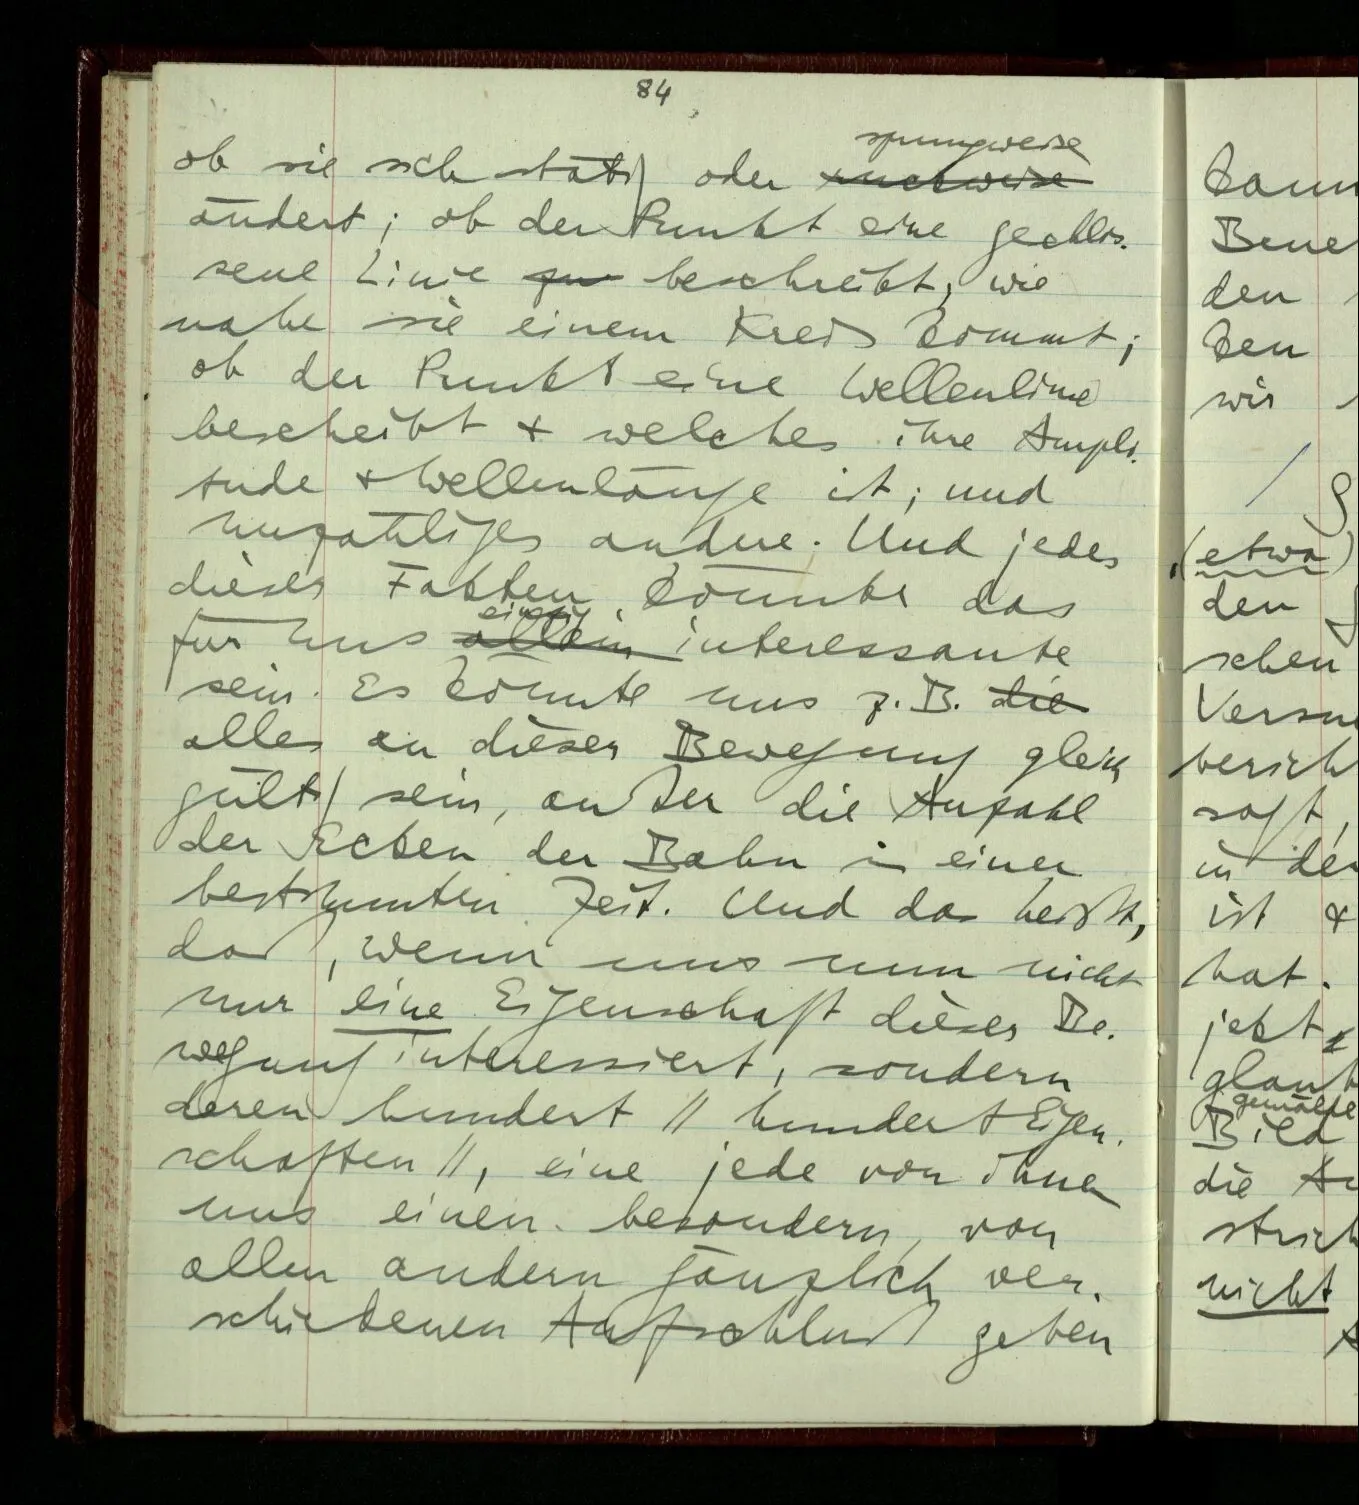 84
sprungweise
ob sie sich stätig oder ruckweise
ändert; ob der Punkt eine geschlos-
sene Linie zu beschreibt, wie
nahe sie einem Kreis kommt;
ob der Punkt eine Wellenlinie
beschreibt & welches ihre Ampli-
tude & Wellenlänge ist; und
unzähliges andre. Und jedes
dieser Fakten könnte das
einzig
für uns allein interessante
sein. Es könnte uns z.B. die
alles an dieser Bewegung gleich
gültig sein, außer die Anzahl
der Ecken der Bahn in einer
bestimmten Zeit. Und das heißt,
daß, wenn uns nun nicht
nur eine Eigenschaft dieser Be-
wegung interessiert, sondern
deren hundert // hundert Eigen-
schaften //, eine jede von ihnen
uns einen besondern, von
allen andern gänzlich ver-
schiedenen Aufschluß geben
kann
Bene
den
ken
wir
(etwa)
den
schen
Versu
berich
sagt,
in der
ist &
hat.
jetzt
glaub
gemalte
Bild
die
strich
nicht